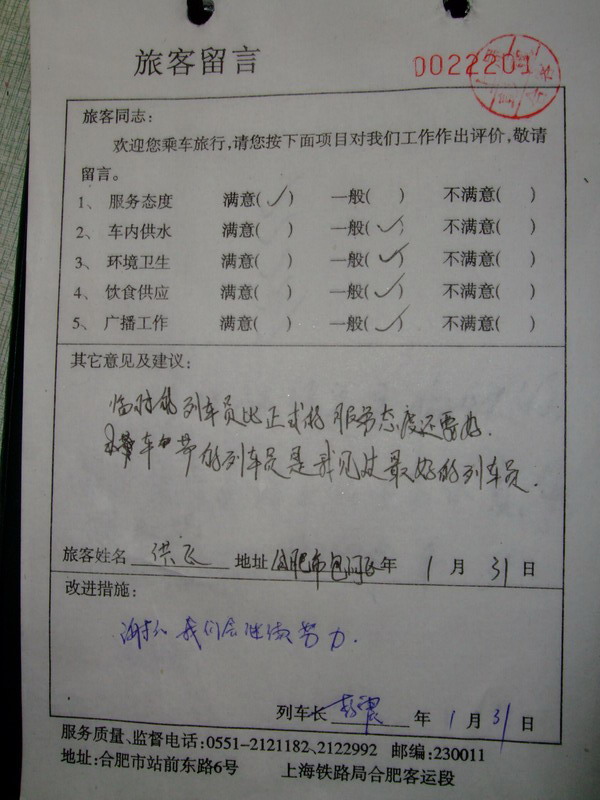 旅客留言
0022201
旅客同志:
欢迎您乘车旅行,请您按下面项目对我们工作作出评价,敬请
留言。
1、 服务态度 满意(✓) 一般( ) 不满意( )
2、 车内供水 满意( ) 一般(✓) 不满意( )
3、 环境卫生 满意( ) 一般(✓) 不满意( )
4、 饮食供应 满意( ) 一般(✓) 不满意( )
5、 广播工作 满意( ) 一般(✓) 不满意( )
其它意见及建议:
临时的列车员比正式的服务态度还要好.
车 的列车员是我见过最好的列车员.
旅客姓名 洪飞 地址 合肥市包河区 年 1 月 31 日
改进措施:
谢谢 我们会继续努力.
列车长 年 1 月 31 日
服务质量、监督电话:0551-2121182、2122992 邮编:230011
地址:合肥市站前东路6号 上海铁路局合肥客运段